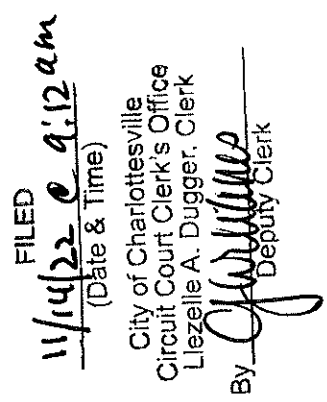 FILED
11/14/22 @ 9:12 am
(Date & Time)
City of Charlottesville
Circuit Court Clerk's Office
Llezelle A. Dugger, Clerk
By
Deputy Clerk